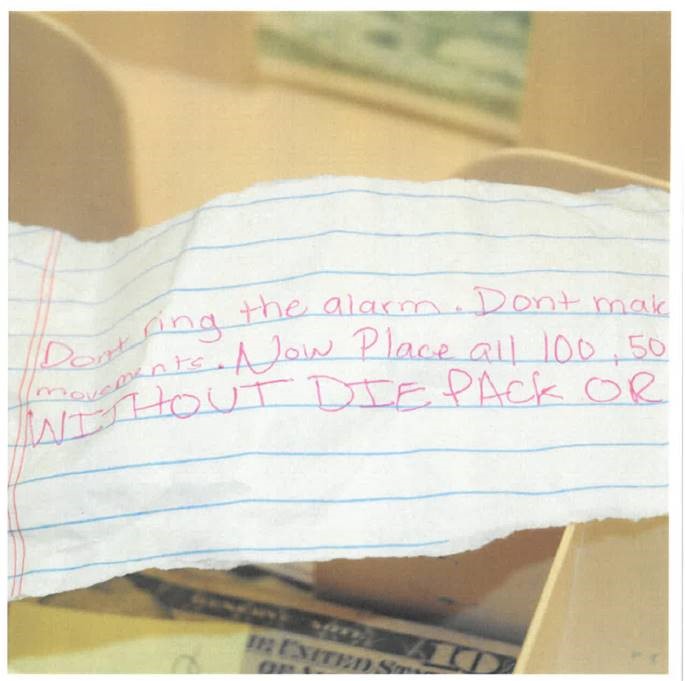 Dont ring the alarm. Dont mak
movements. Now Place all 100, 50
WITHOUT DIE PACK OR
RESERVE NOTE
THE UNITED ST
OF A
10